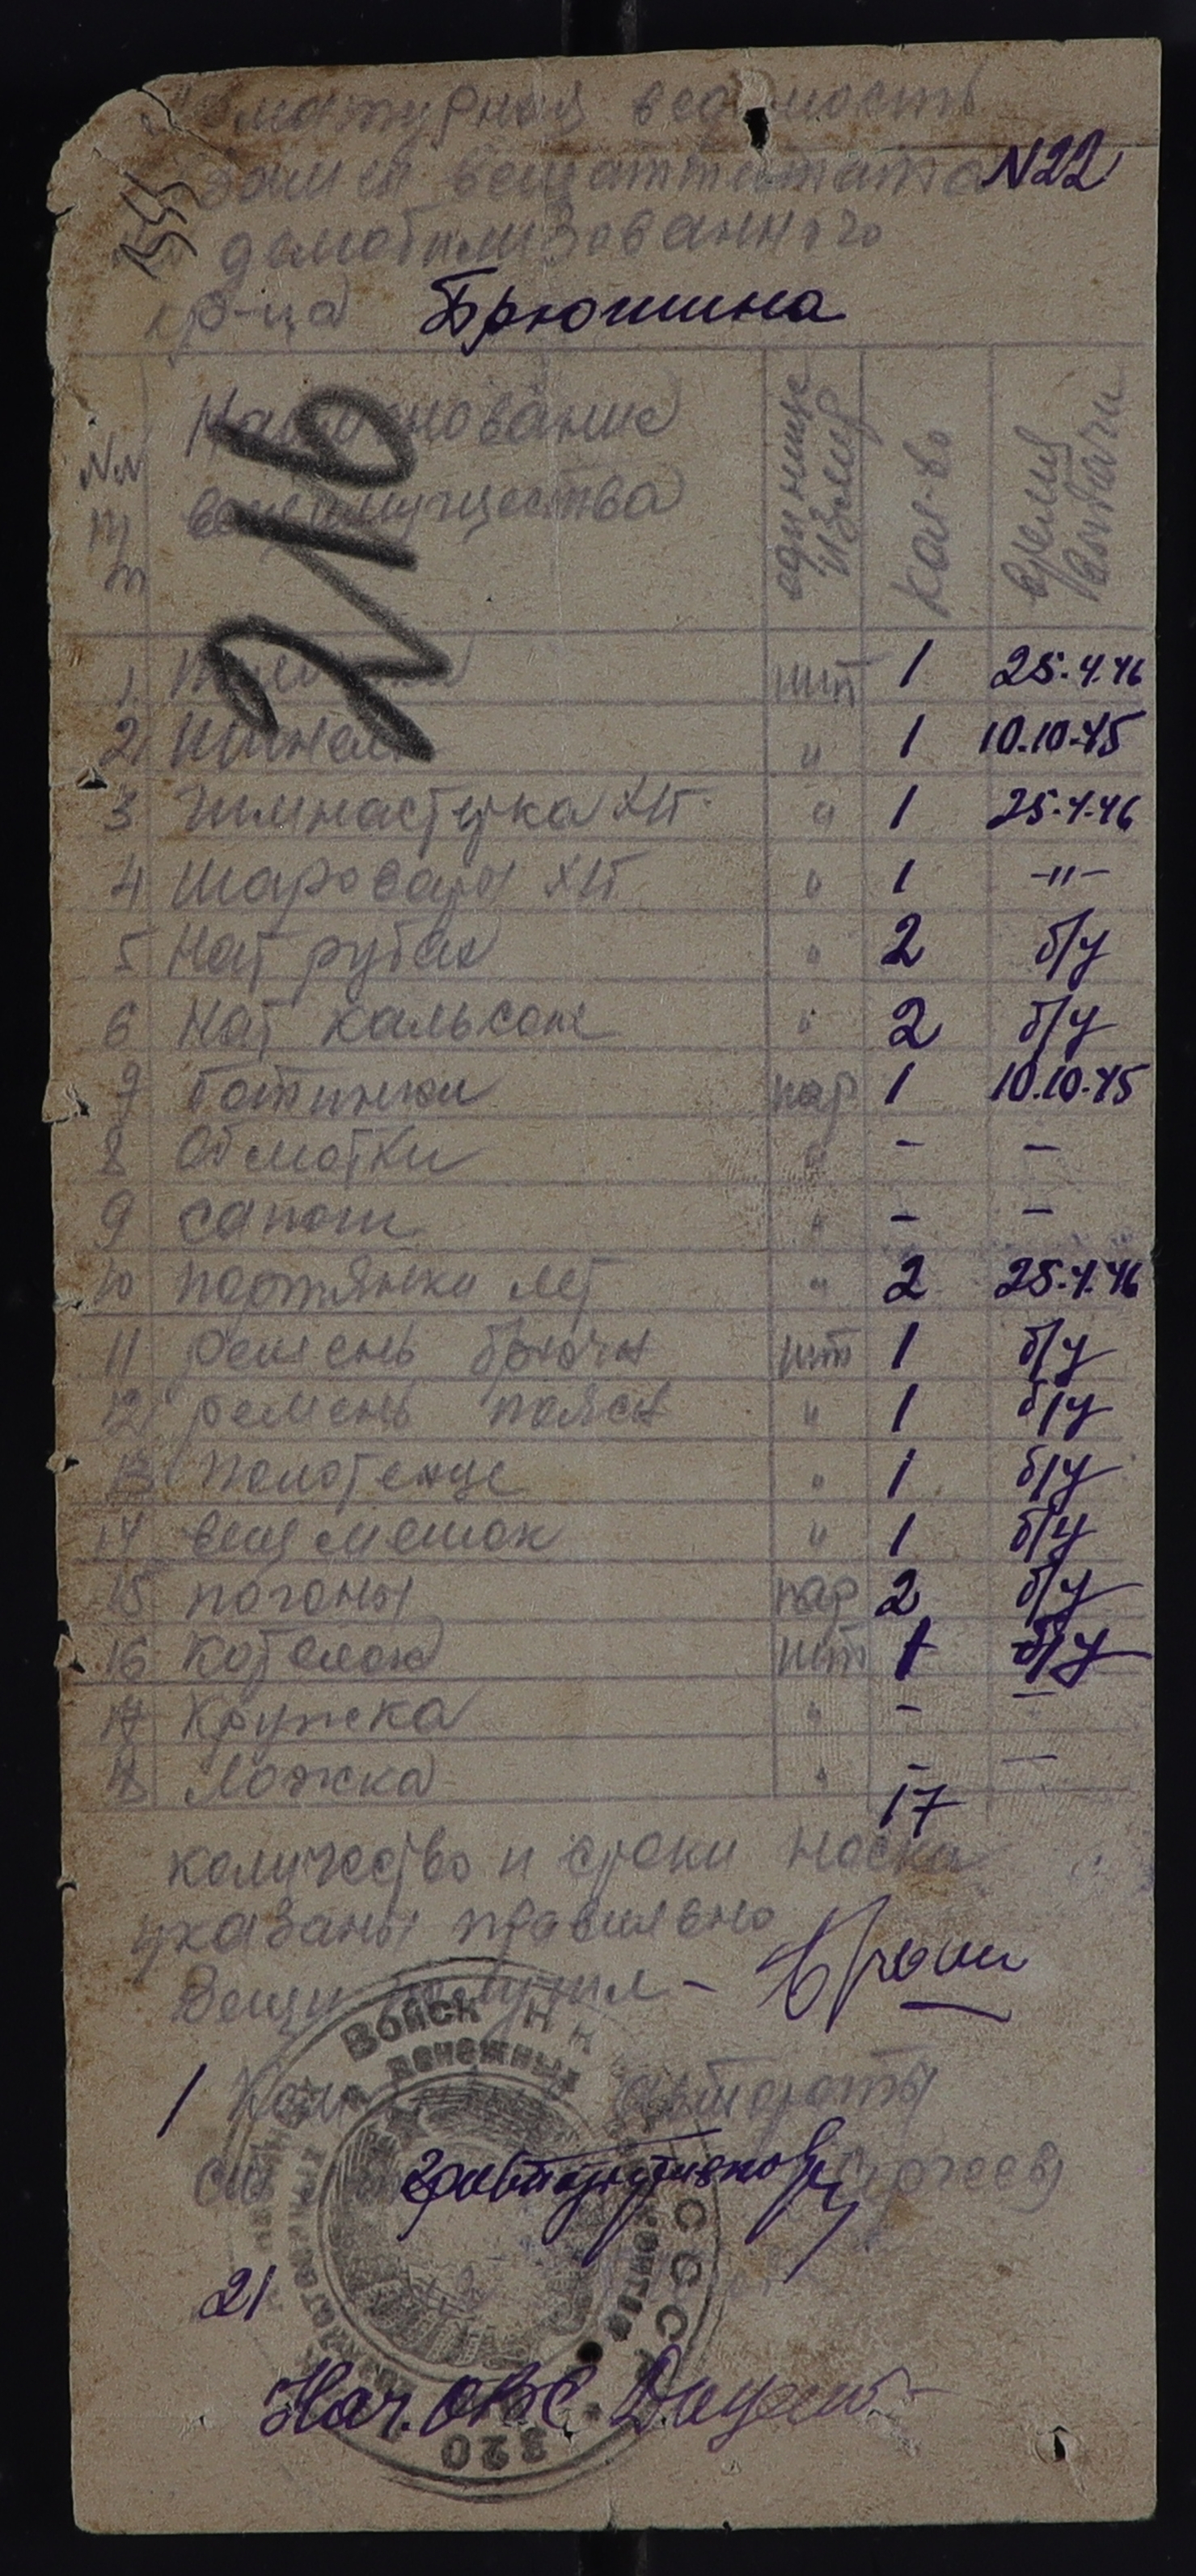 Арматурная ведомость
взамен вещаттестата N22
демобилизованного
кр-ца Брюшина
216
NN пп Наименование вещимущества единице измер кол-во время выдачи
1 шт 1 25.4.46
2 Шинель " 1 10.10.45
3 Гимнастерка ХБ " 1 25.4.46
4 Шаровары ХБ " 1 -"-
5 Нат рубах " 2 б/у
6 Нат кальсон " 2 б/у
7 Ботинки пар 1 10.10.45
8 Обмотки " - -
9 сапоги " - -
10 портянки лет " 2 25.4.46
11 ремень брючн шт 1 б/у
12 ремень поясн " 1 б/у
13 Полотенце " 1 б/у
14 вещмешок " 1 б/у
15 погоны пар 2 б/у
16 Котелок шт 1 б/у
17 Кружка " - -
18 Ложка " - -
17
количество и сроки носки
указаны правильно
Вещи получил -
1 Ком автороты
21
Нач. ОВС
Войск
денежных
СССР
320